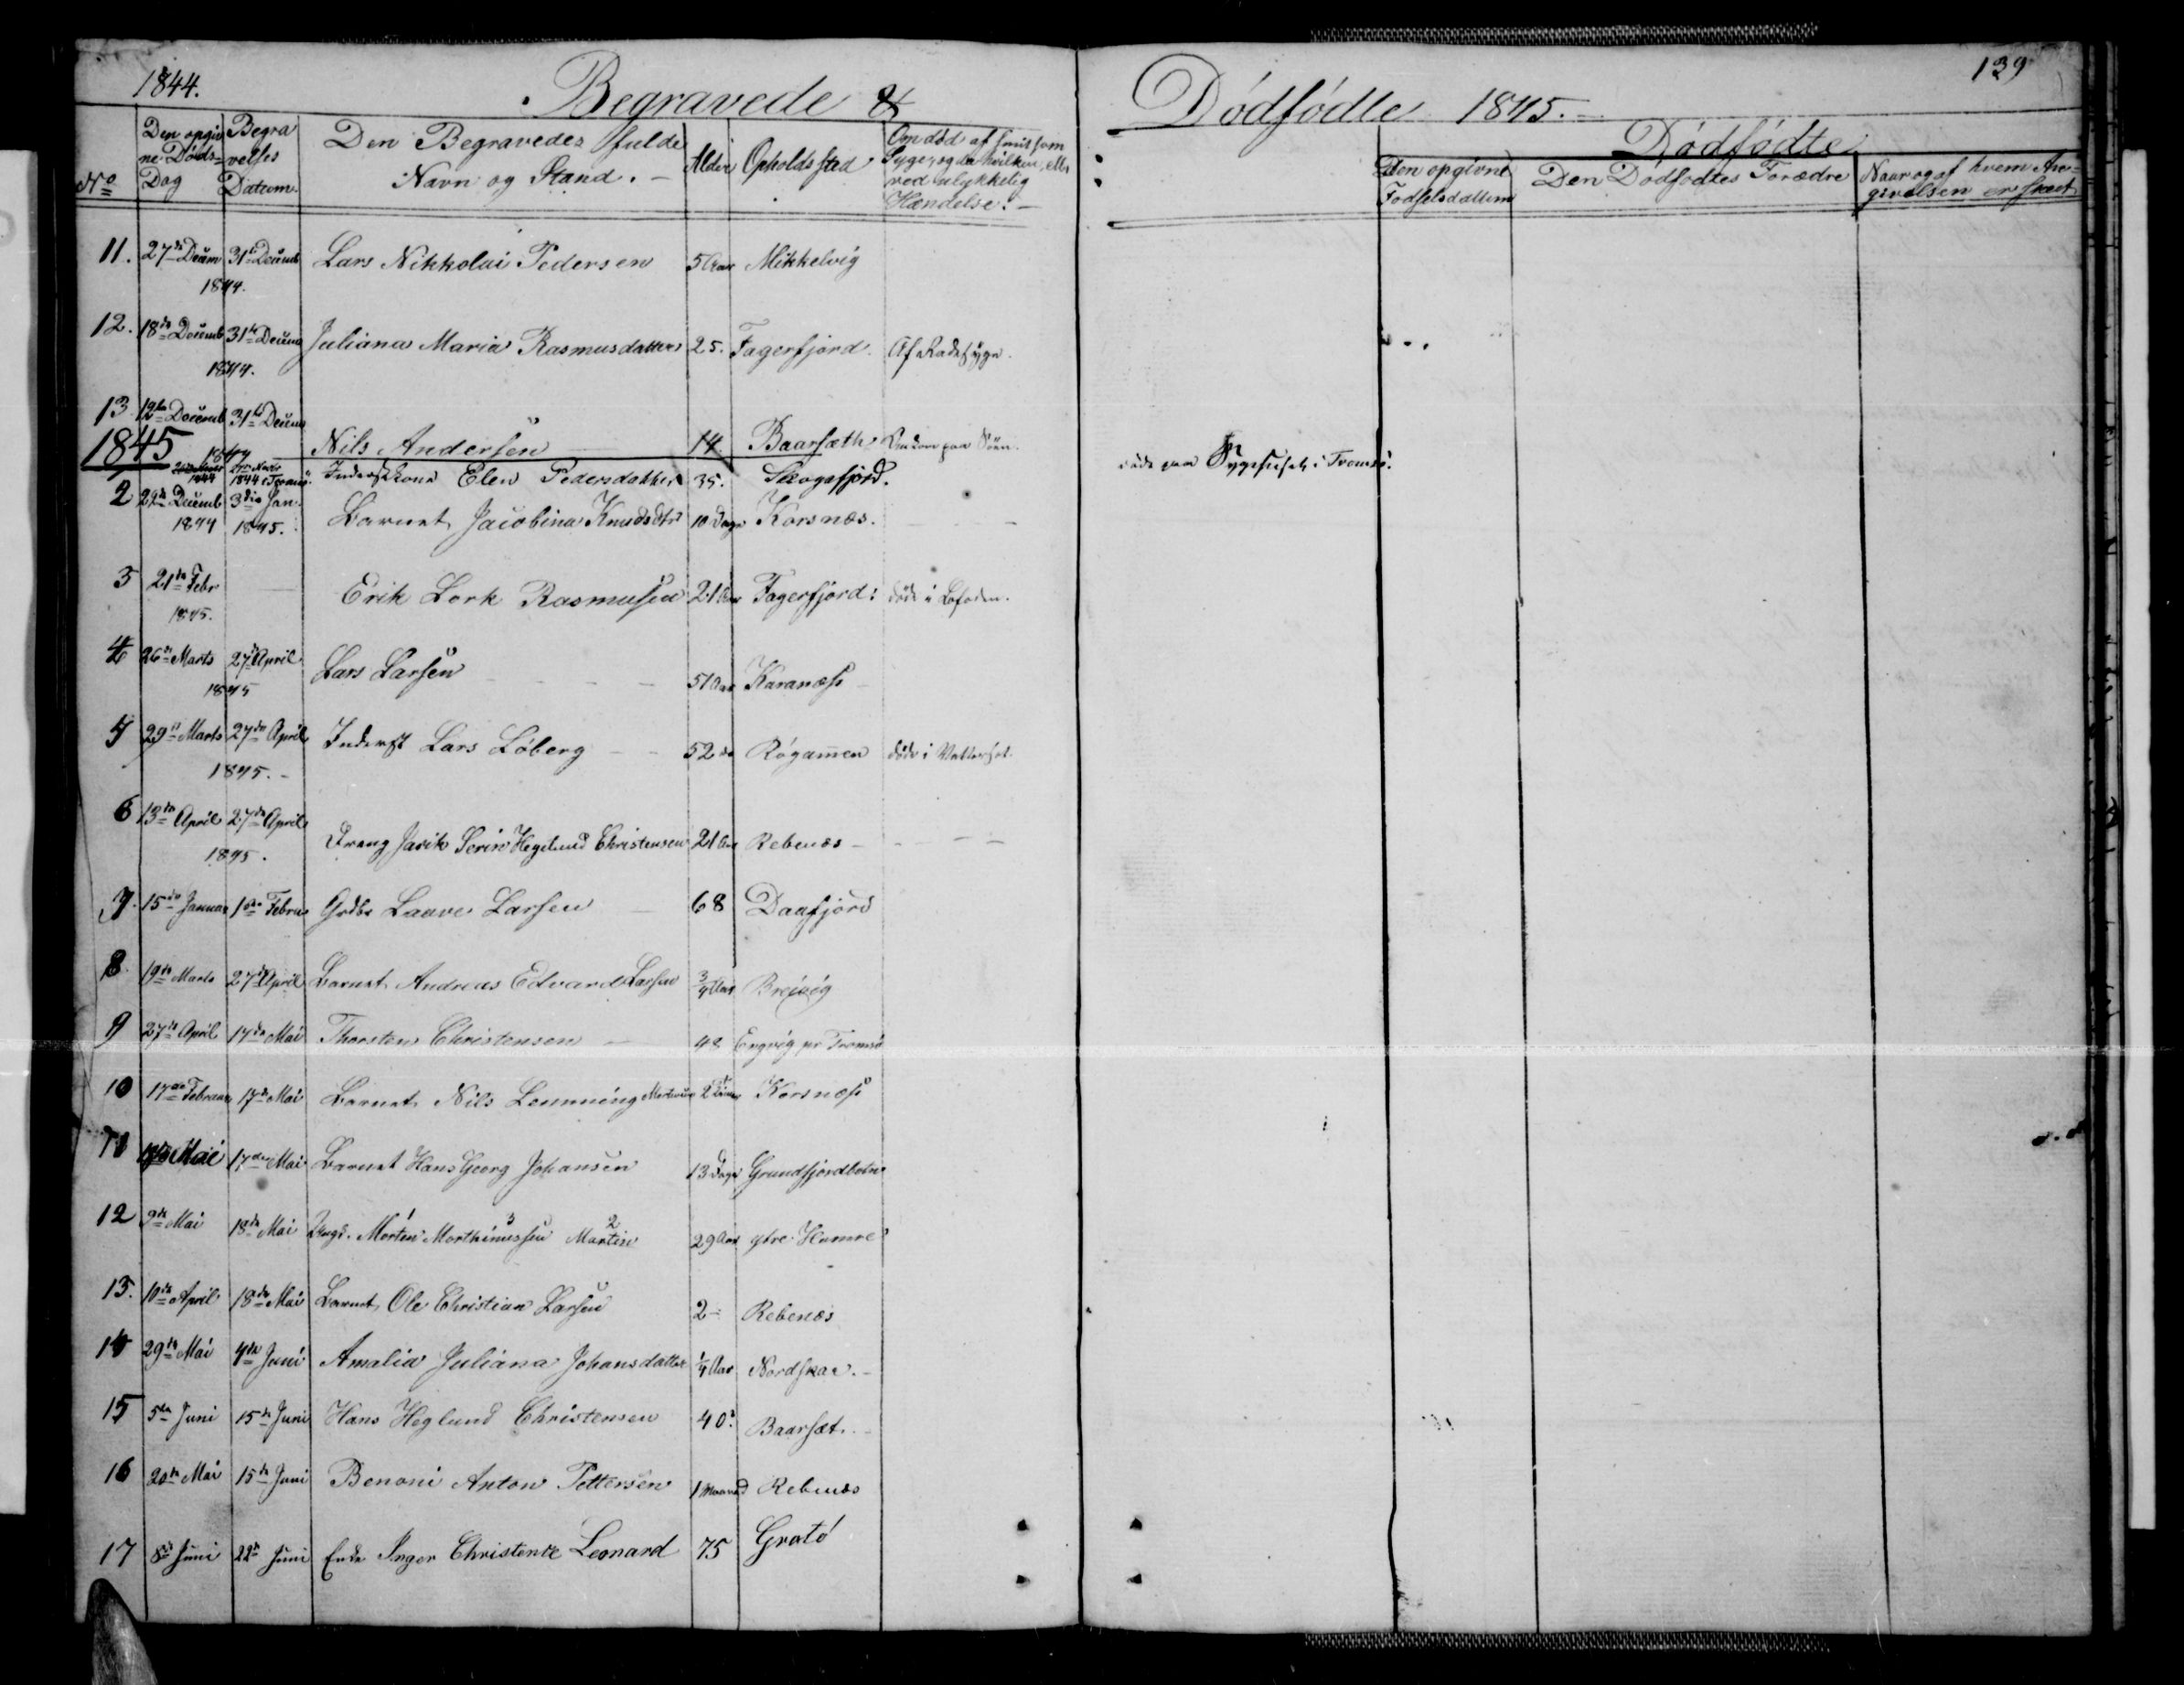 1844.
Begravede &
Dödfödte 1845.
139
No
Den opgivne Döds= Dag
Begravelses Datum
Den Begravedes fulde Navn og Stand.
Alder
Opholdssted
Om död af smitsom Syge, og da hvilken, eller ved ulykkelig Hændelse.
Dödfödte
Den opgivne Födselsdatum
Den Dödfödtes Forældre
Naar og af hvem Angivelsen er skeet
11. 27de Decemb 31te Decemb 1844. Lars Nikkolai Pedersen 5 Aar Mikkelvig
12. 18de Decemb 31te Decemb 1844. Juliana Maria Rasmusdatter 25. Fagerfjord. Af Radesyge.
13 12te Decemb 31te Decemb 1844 Nils Andersen 14 Baarsæth Omkom paa Söen.
1845
1844 1844 i Tromsö. Inderstkone Elen Pedersdatter 35. Skogsfjord. döde paa Sygehuset i Tromsö.
2 22de Decemb 1844 3die Jan. 1845. Barnet Jacobina Knudsdtr 10 Dage Korsnæs.
3 21de Febr 1845. Erik Lork Rasmusen 21 Aar Fagerfjord: döde i Lofoden.
4 26de Marts 27de April 1845 Lars Larsen 51 Aar Karanæss
5 29de Marts 27de April 1845. Inderst Lars Löberg 52 do Rögamen döde i
6 13de April 27de April 1845. Dreng Serin Hegelund Christensen 21 Aar Rebenæs
7. 15de Januar Februar Grdbr Laave Larsen 68 Daafjord
8. 19de Marts 27de April Barnet Andreas Edvard Larsen 3/4 Aar Brejvig
9 27de April 17de Mai Thorsten Christensen 48 Engvig pr Tromsö
10 17de Februar 17de Mai Barnet Nils Lemming 2 Korsnæss
11 Mai 17de Mai Barnet Hans Georg Johansen 13 Dage Grundfjordbotn
12 9de Mai 18de Mai Ungk. Morten Morthinussen 3 Martin 2 29 Aar ytre Hamre
13. 10de April 18de Mai Barnet Ole Christian Larsen 2 Rebenæs
14 29de Mai 4de Juni Amalia Juliana Johansdatter 1/4 Aar Nordskar.
15 5te Juni 15de Juni Hans Heglund Christensen 40. Baarsæt.
16 20de Mai 15de Juni Benoni Anton Pettersen 1 Maaned Rebenæs
17 8de Juni 22de Juni Enke Inger Christente Leonard 75 Grotö